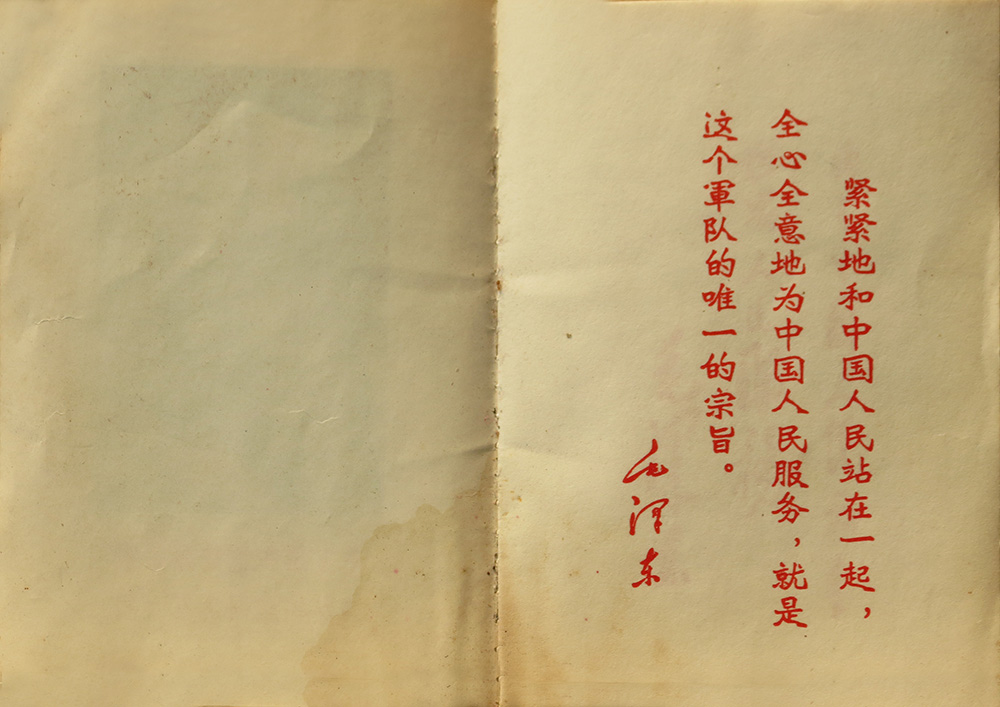 紧紧地和中国人民站在一起，
全心全意地为中国人民服务，就是
这个軍队的唯一的宗旨。
毛泽东